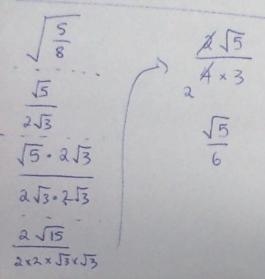 √(5/8)
√5/(2√3)
(√5 · 2√3)/(2√3 · 2√3)
2√15/(2×2×√3×√3)
2√5/(4×3)
2
√5/6